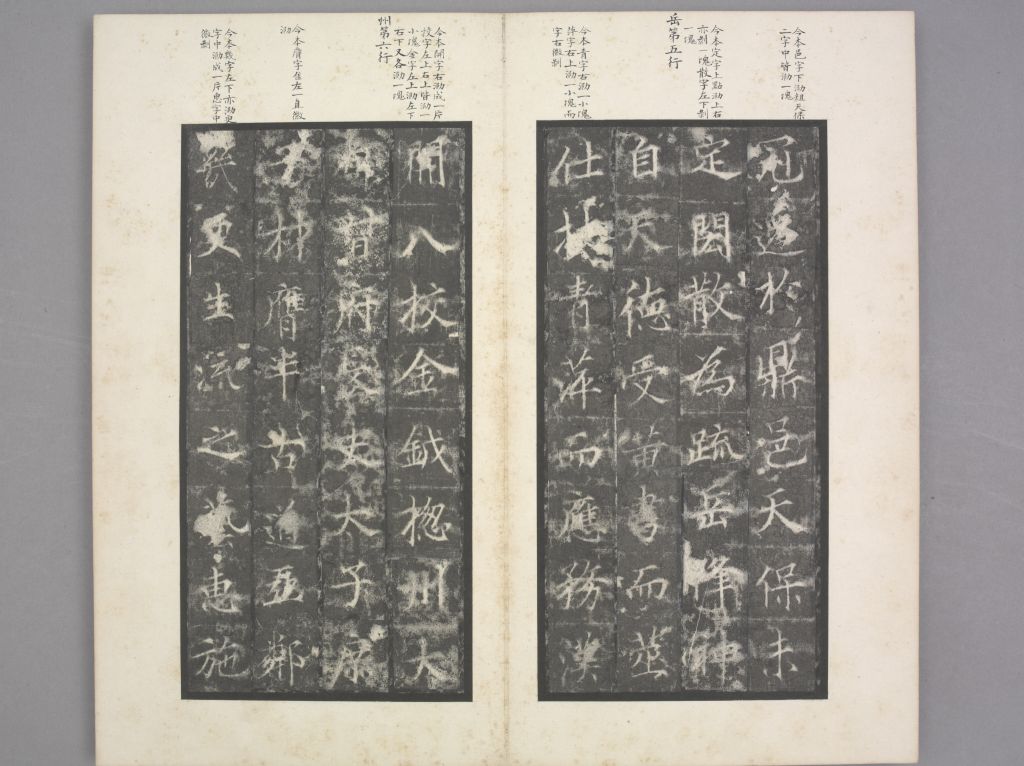 今本邑字下泐粗天保
二字中皆泐一塊
今本定字上點泐上右
亦剝一塊散字左下剝
一塊
岳第五行
今本青字右泐一小塊
萍字右上泐一小塊而
字右微剝
冠於鼎邑天保未
定閎散為疏岳峰神
自天德受書而莅
仕青萍而應務漢
今本開字右泐成一片
校字左上右上皆泐一
小塊金字左上泐左下
右下又各泐一塊
州第六行
今本膺字左一直微
泐
今本字左下亦泐更
字中泐成一片惠字中
微剝
開八校金鉞揔州大
府大子
膺半古迫亞鄰
更生流之惠施